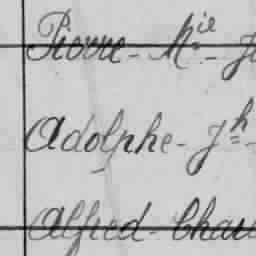 Pierre - Mie - J
Adolphe - Jh -
Alfred - Char